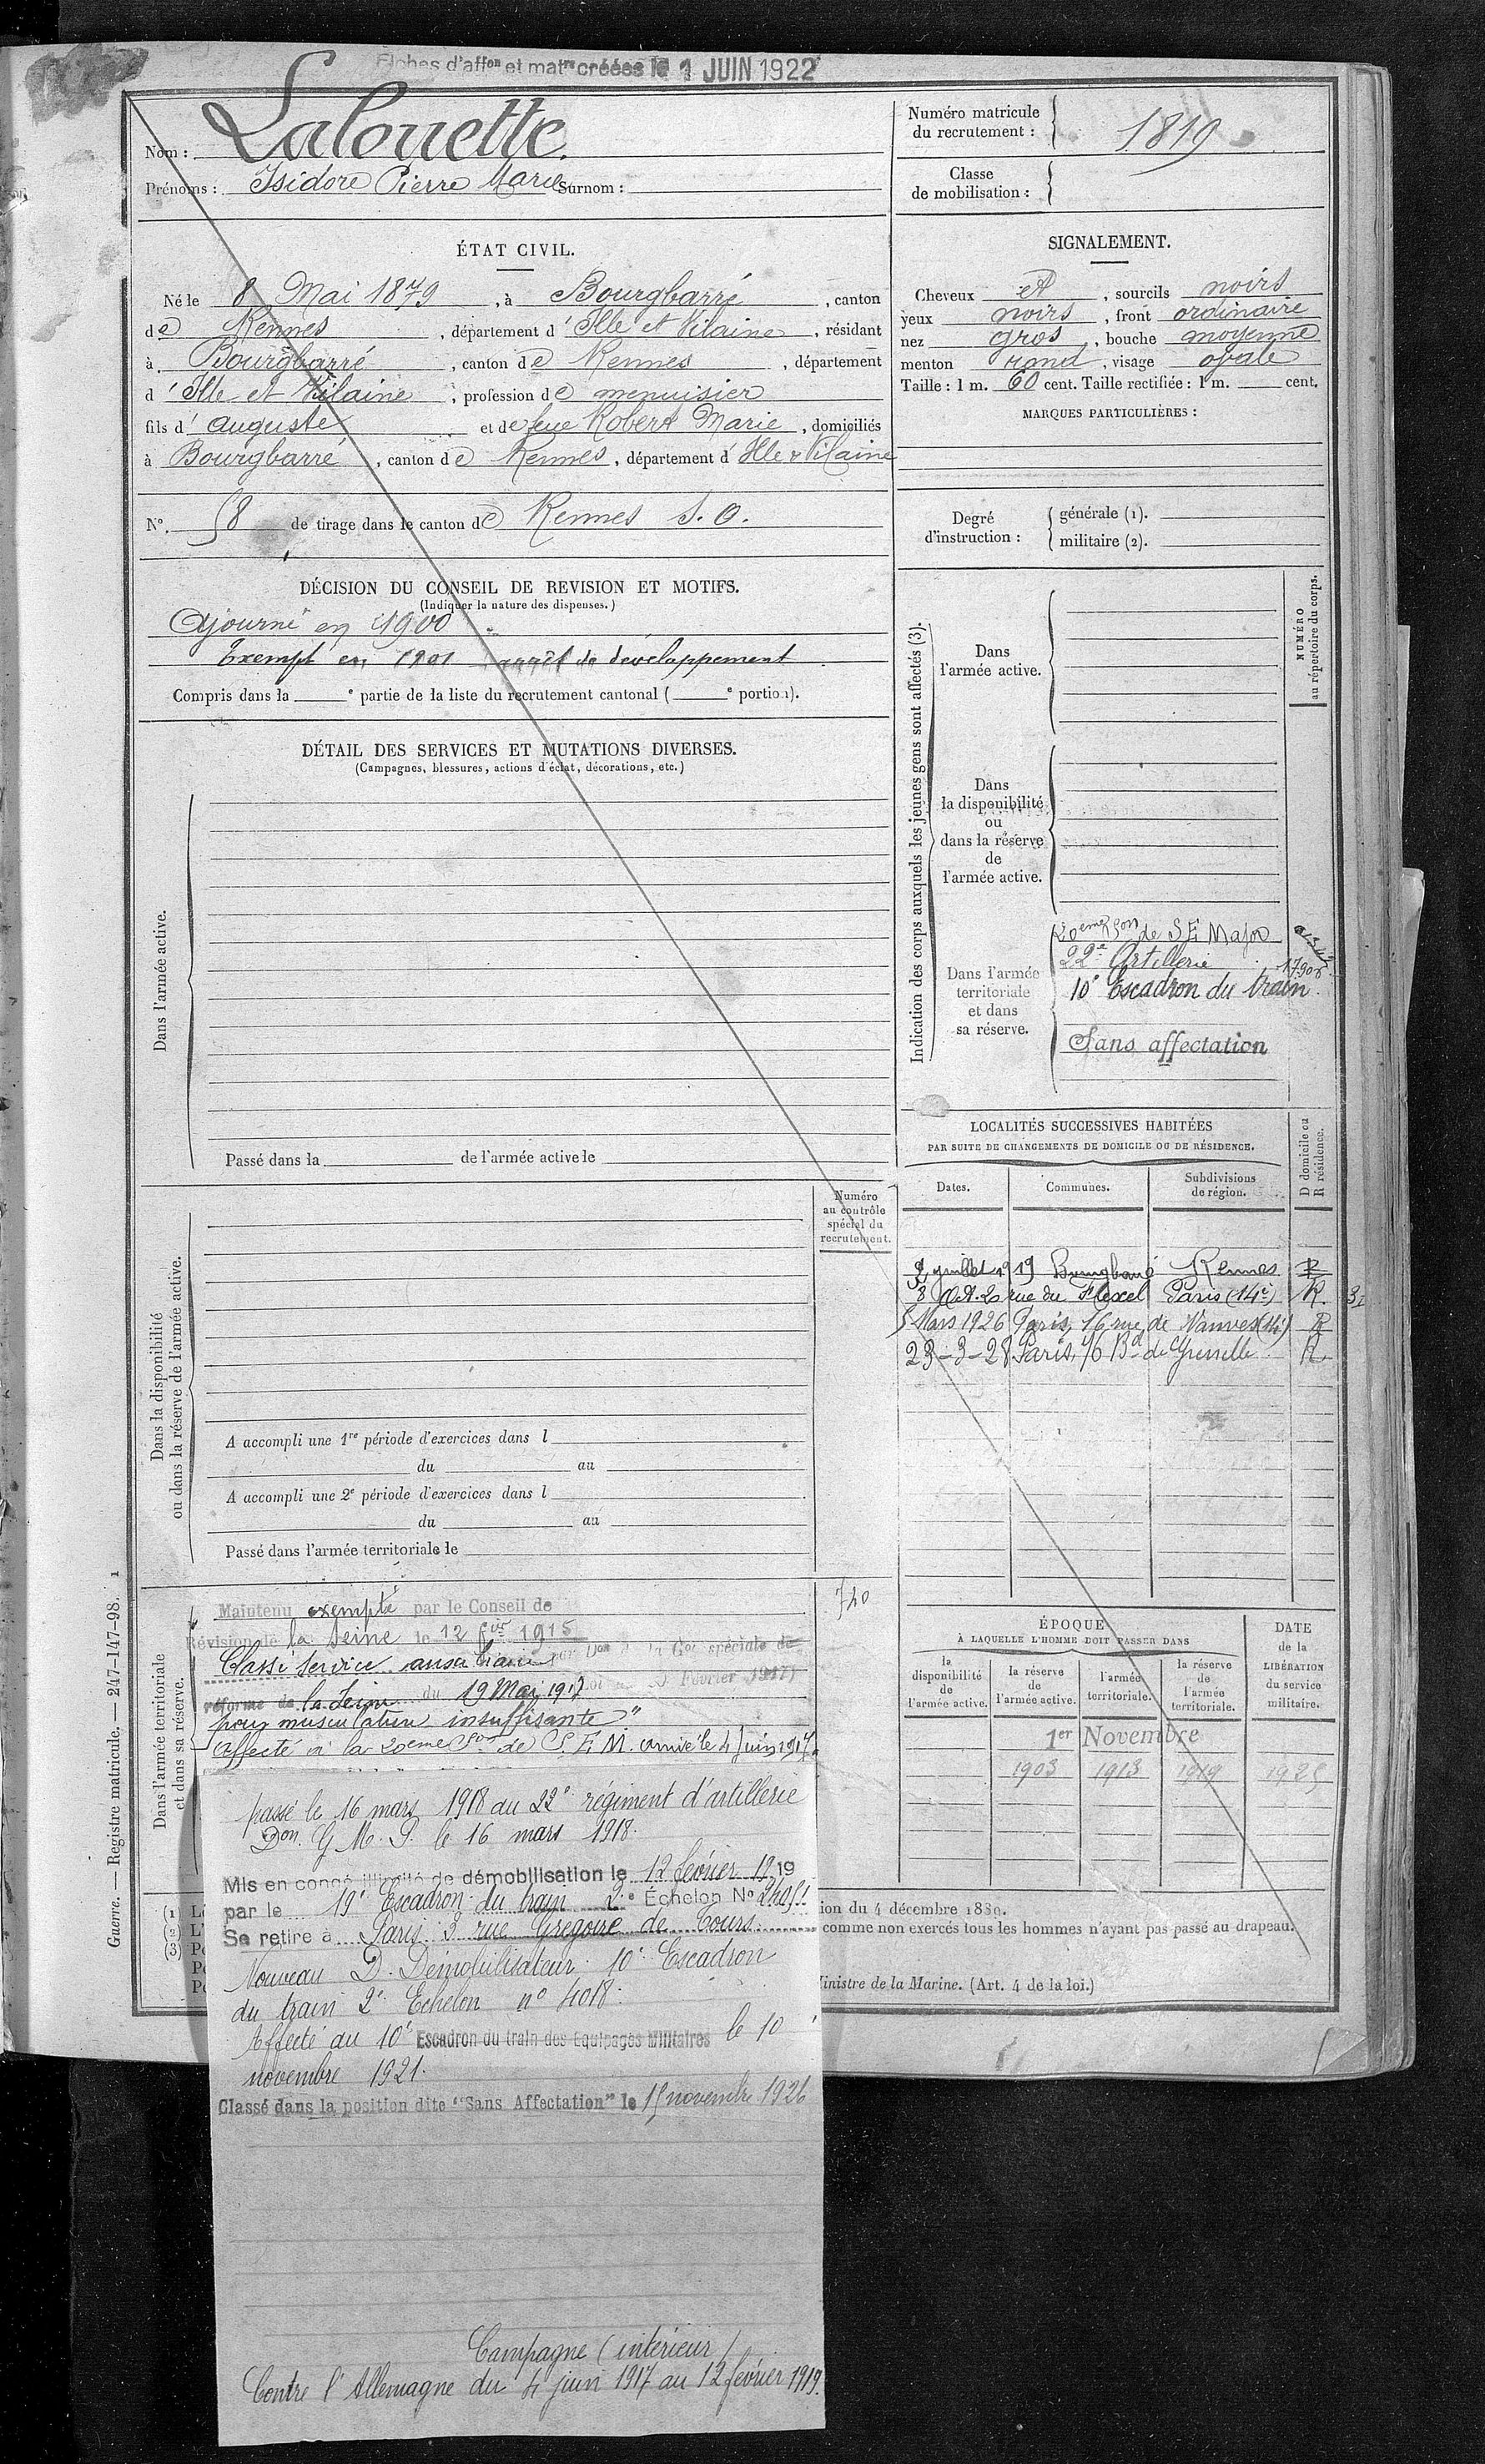 Fiches d'affon et matre créées le 1 JUIN 1922
Nom : Lalouette.
Prénoms : Isidore Pierre Marie Surnom :
Numéro matricule
du recrutement : 1819
Classe
de mobilisation :
ÉTAT CIVIL.
Né le 8 Mai 1879, à Bourgbarré, canton
de Rennes, département d'Ille et Vilaine, résidant
à Bourgbarré, canton de Rennes, département
d'Ille et Vilaine, profession de menuisier
fils d'Auguste et de feue Robert Marie, domiciliés
à Bourgbarré, canton de Rennes, département d'Ille & Vilaine
SIGNALEMENT.
Cheveux et, sourcils noirs
yeux noirs, front ordinaire
nez gros, bouche moyenne
menton rond, visage ovale
Taille : 1 m. 60 cent. Taille rectifiée : 1 m. cent.
MARQUES PARTICULIÈRES :
N° 58 de tirage dans le canton de Rennes S. O.
Degré
d'instruction :
générale (1).
militaire (2).
DÉCISION DU CONSEIL DE REVISION ET MOTIFS.
(Indiquer la nature des dispenses.)
Ajourné en 1900
Exempt en 1901 arrêt de développement
Compris dans la e partie de la liste du recrutement cantonal ( e portion).
DÉTAIL DES SERVICES ET MUTATIONS DIVERSES.
(Campagnes, blessures, actions d'éclat, décorations, etc.)
Dans l'armée active.
Passé dans la de l'armée active le
Indication des corps auxquels les jeunes gens sont affectés (3).
NUMÉRO
au répertoire du corps.
Dans
l'armée active.
Dans
la disponibilité
ou
dans la réserve
de
l'armée active.
Dans l'armée
territoriale
et dans
sa réserve.
20eme Son de S.E. Major
22e Artillerie
10e Escadron du train
Sans affectation
LOCALITÉS SUCCESSIVES HABITÉES
PAR SUITE DE CHANGEMENTS DE DOMICILE OU DE RÉSIDENCE.
D domicile ou
R résidence.
Dates.
Communes.
Subdivisions
de région.
2 juillet 1919 Bourgbarré Rennes R
8 Oct. 20 rue du Texel Paris (14e) R.
5 Mars 1926 Paris, 16 rue de Vanves (14) R
23-3-28 Paris, 76 Bd de Grenelle R
Dans la disponibilité
ou dans la réserve de l'armée active.
Numéro
au contrôle
spécial du
recrutement.
A accompli une 1re période d'exercices dans l
du au
A accompli une 2e période d'exercices dans l
du au
Passé dans l'armée territoriale le
Dans l'armée territoriale
et dans sa réserve.
740
Maintenu exempté par le Conseil de
Révision de la Seine le 12 1915
Classé service auxiliaire par Don de la Con spéciale de
réforme de la Seine du 19 Mai 1917 Février 1917)
pour musculature insuffisante"
Affecté à la 20eme Son de S.E.M. arrivé le 4 Juin 1917
passé le 16 mars 1918 au 22e régiment d'artillerie
Don G.M.P. le 16 mars 1918.
Mis en congé illimité de démobilisation le 12 février 1919
par le 19e Escadron du train 2e Échelon N°
Se retire à Paris 3 rue Grégoire de Tours
Nouveau D. Démobilisateur 10e Escadron
du train 2e Echelon n° 4018.
Affecté au 10e Escadron du train des Equipages Militaires le 10
novembre 1921.
Classé dans la position dite "Sans Affectation" le 15 novembre 1926
Campagne (intérieur)
Contre l'Allemagne du 4 juin 1917 au 12 février 1919.
ÉPOQUE
À LAQUELLE L'HOMME DOIT PASSER DANS
DATE
de la
LIBÉRATION
du service
militaire.
la
disponibilité
de
l'armée active.
la réserve
de
l'armée active.
l'armée
territoriale.
la réserve
de
l'armée
territoriale.
1er Novembre
1903 1913 1919 1925
ion du 4 décembre 1889.
comme non exercés tous les hommes n'ayant pas passé au drapeau.
Ministre de la Marine. (Art. 4 de la loi.)
Guerre. — Registre matricule. — 247-147-98. 1